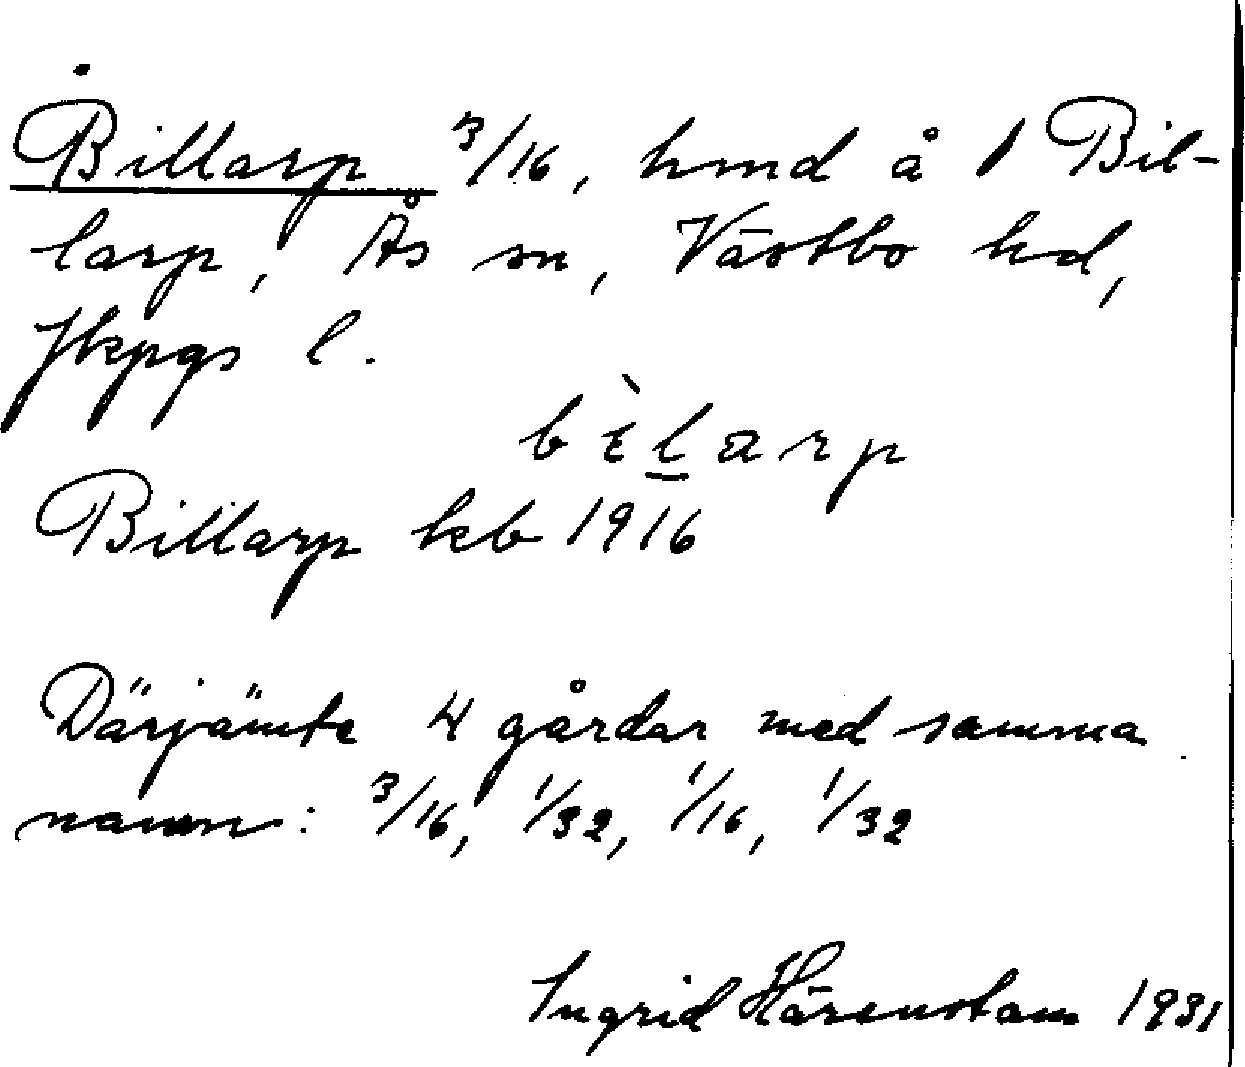 Billarp 3/16, hmd å 1 Bil-
larp, Ås sn, Västbo hd,
Jkpgs l.
bɛ̀larp
Billarp kb 1916
Därjämte 4 gårdar med samma
namn: 3/16, 1/32, 1/16, 1/32
Ingrid Härenstam 1931